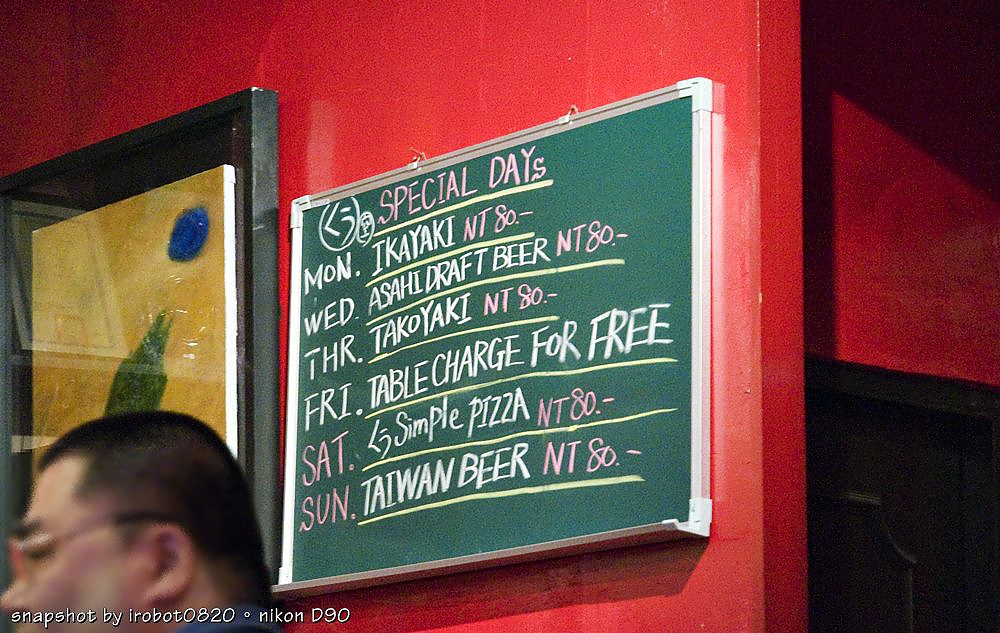 くら SPECIAL DAYs
MON. IKAYAKI NT 80.-
WED. ASAHI DRAFT BEER NT 80.-
THR. TAKOYAKI NT 80.-
FRI. TABLE CHARGE FOR FREE
SAT. くら Simple PIZZA NT 80.-
SUN. TAIWAN BEER NT 80.-
snapshot by irobot0820。nikon D90